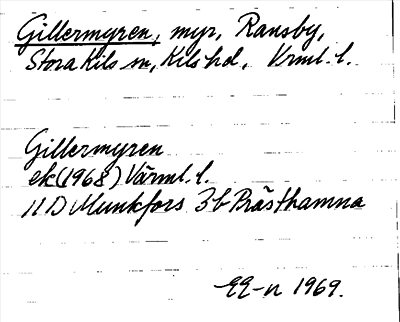 Gillermyren, myr, Ransby,
Stora Kils sn, Kils hd, Vrml. l.
Gillermyren
ek (1968) Värml. l.
11 D Munkfors 3b Prästhamna
1969.